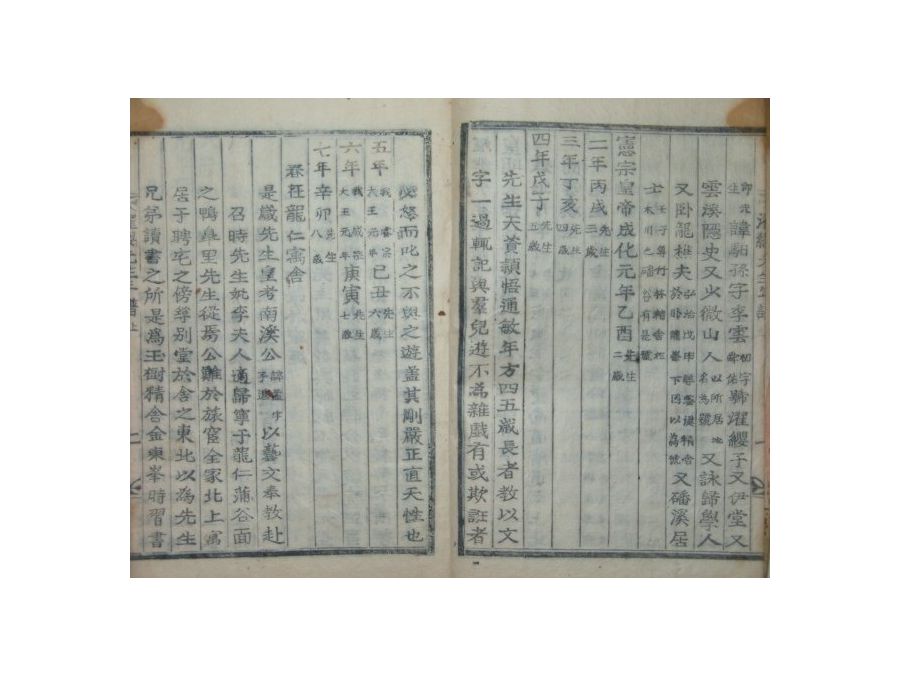 諱馹孫字季雲 號濯纓子又伊堂又
雲溪隱史又少微山人 以所居 名爲號 又詠歸學人
又臥龍樵夫 弘治戊申 精舍 下因以爲號 又磻溪居
士
憲宗皇帝成化元年乙酉 先生二歲
二年丙戌 先生三歲
三年丁亥 先生四歲
四年戊子 先生五歲
先生天資穎悟通敏年方四五歲長者敎以文
字一過輒記與羣兒遊不爲雜戱有或欺誑者
必怒而叱之不與之遊盖其剛嚴正直天性也
五年 我睿宗大王元年 己丑 先生六歲
六年 我成宗大王元年 庚寅 先生七歲
七年辛卯 先生八歲
春在龍仁寓舍
是歲先生皇考南溪公 以藝文奉敎赴
召時先生妣李夫人適歸寧于龍仁蒲谷面
之鴨 里先生從焉公難於旅宦全家北上寓
居于聘宅之傍 別堂於舍之東北以爲先生
兄弟讀書之所是爲玉樹精舍金東峯時習書